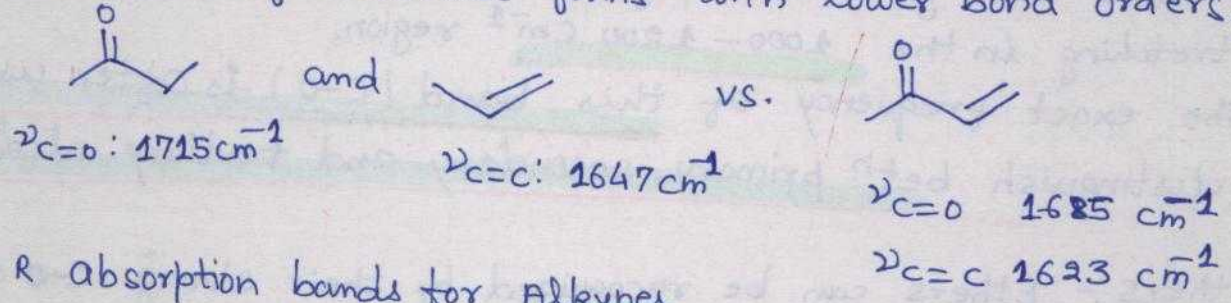 forms with lower bond orders
O
and vs. O
νC=O : 1715 cm⁻¹
νC=C : 1647 cm⁻¹
νC=O 1685 cm⁻¹
νC=C 1623 cm⁻¹
R absorption bands for Alkynes